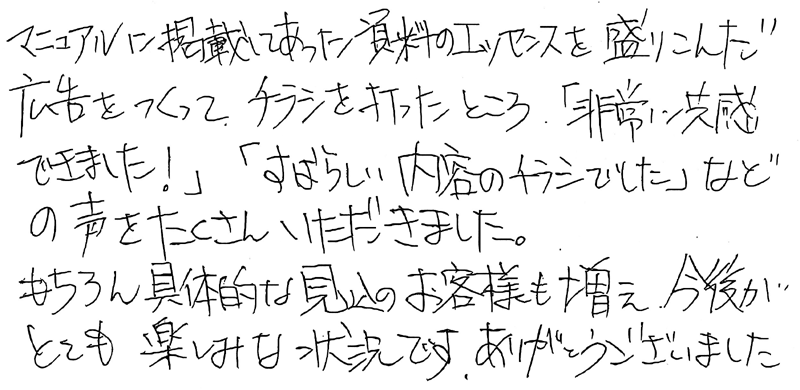 マニュアルに掲載してあった資料のエッセンスを盛りこんだ
広告をつくって、チラシを打ったところ、「非常に共感
できました！」「すばらしい内容のチラシでした」など
の声をたくさんいただきました。
もちろん具体的な見込のお客様も増え、今後が
とても楽しみな状況です。ありがとうございました